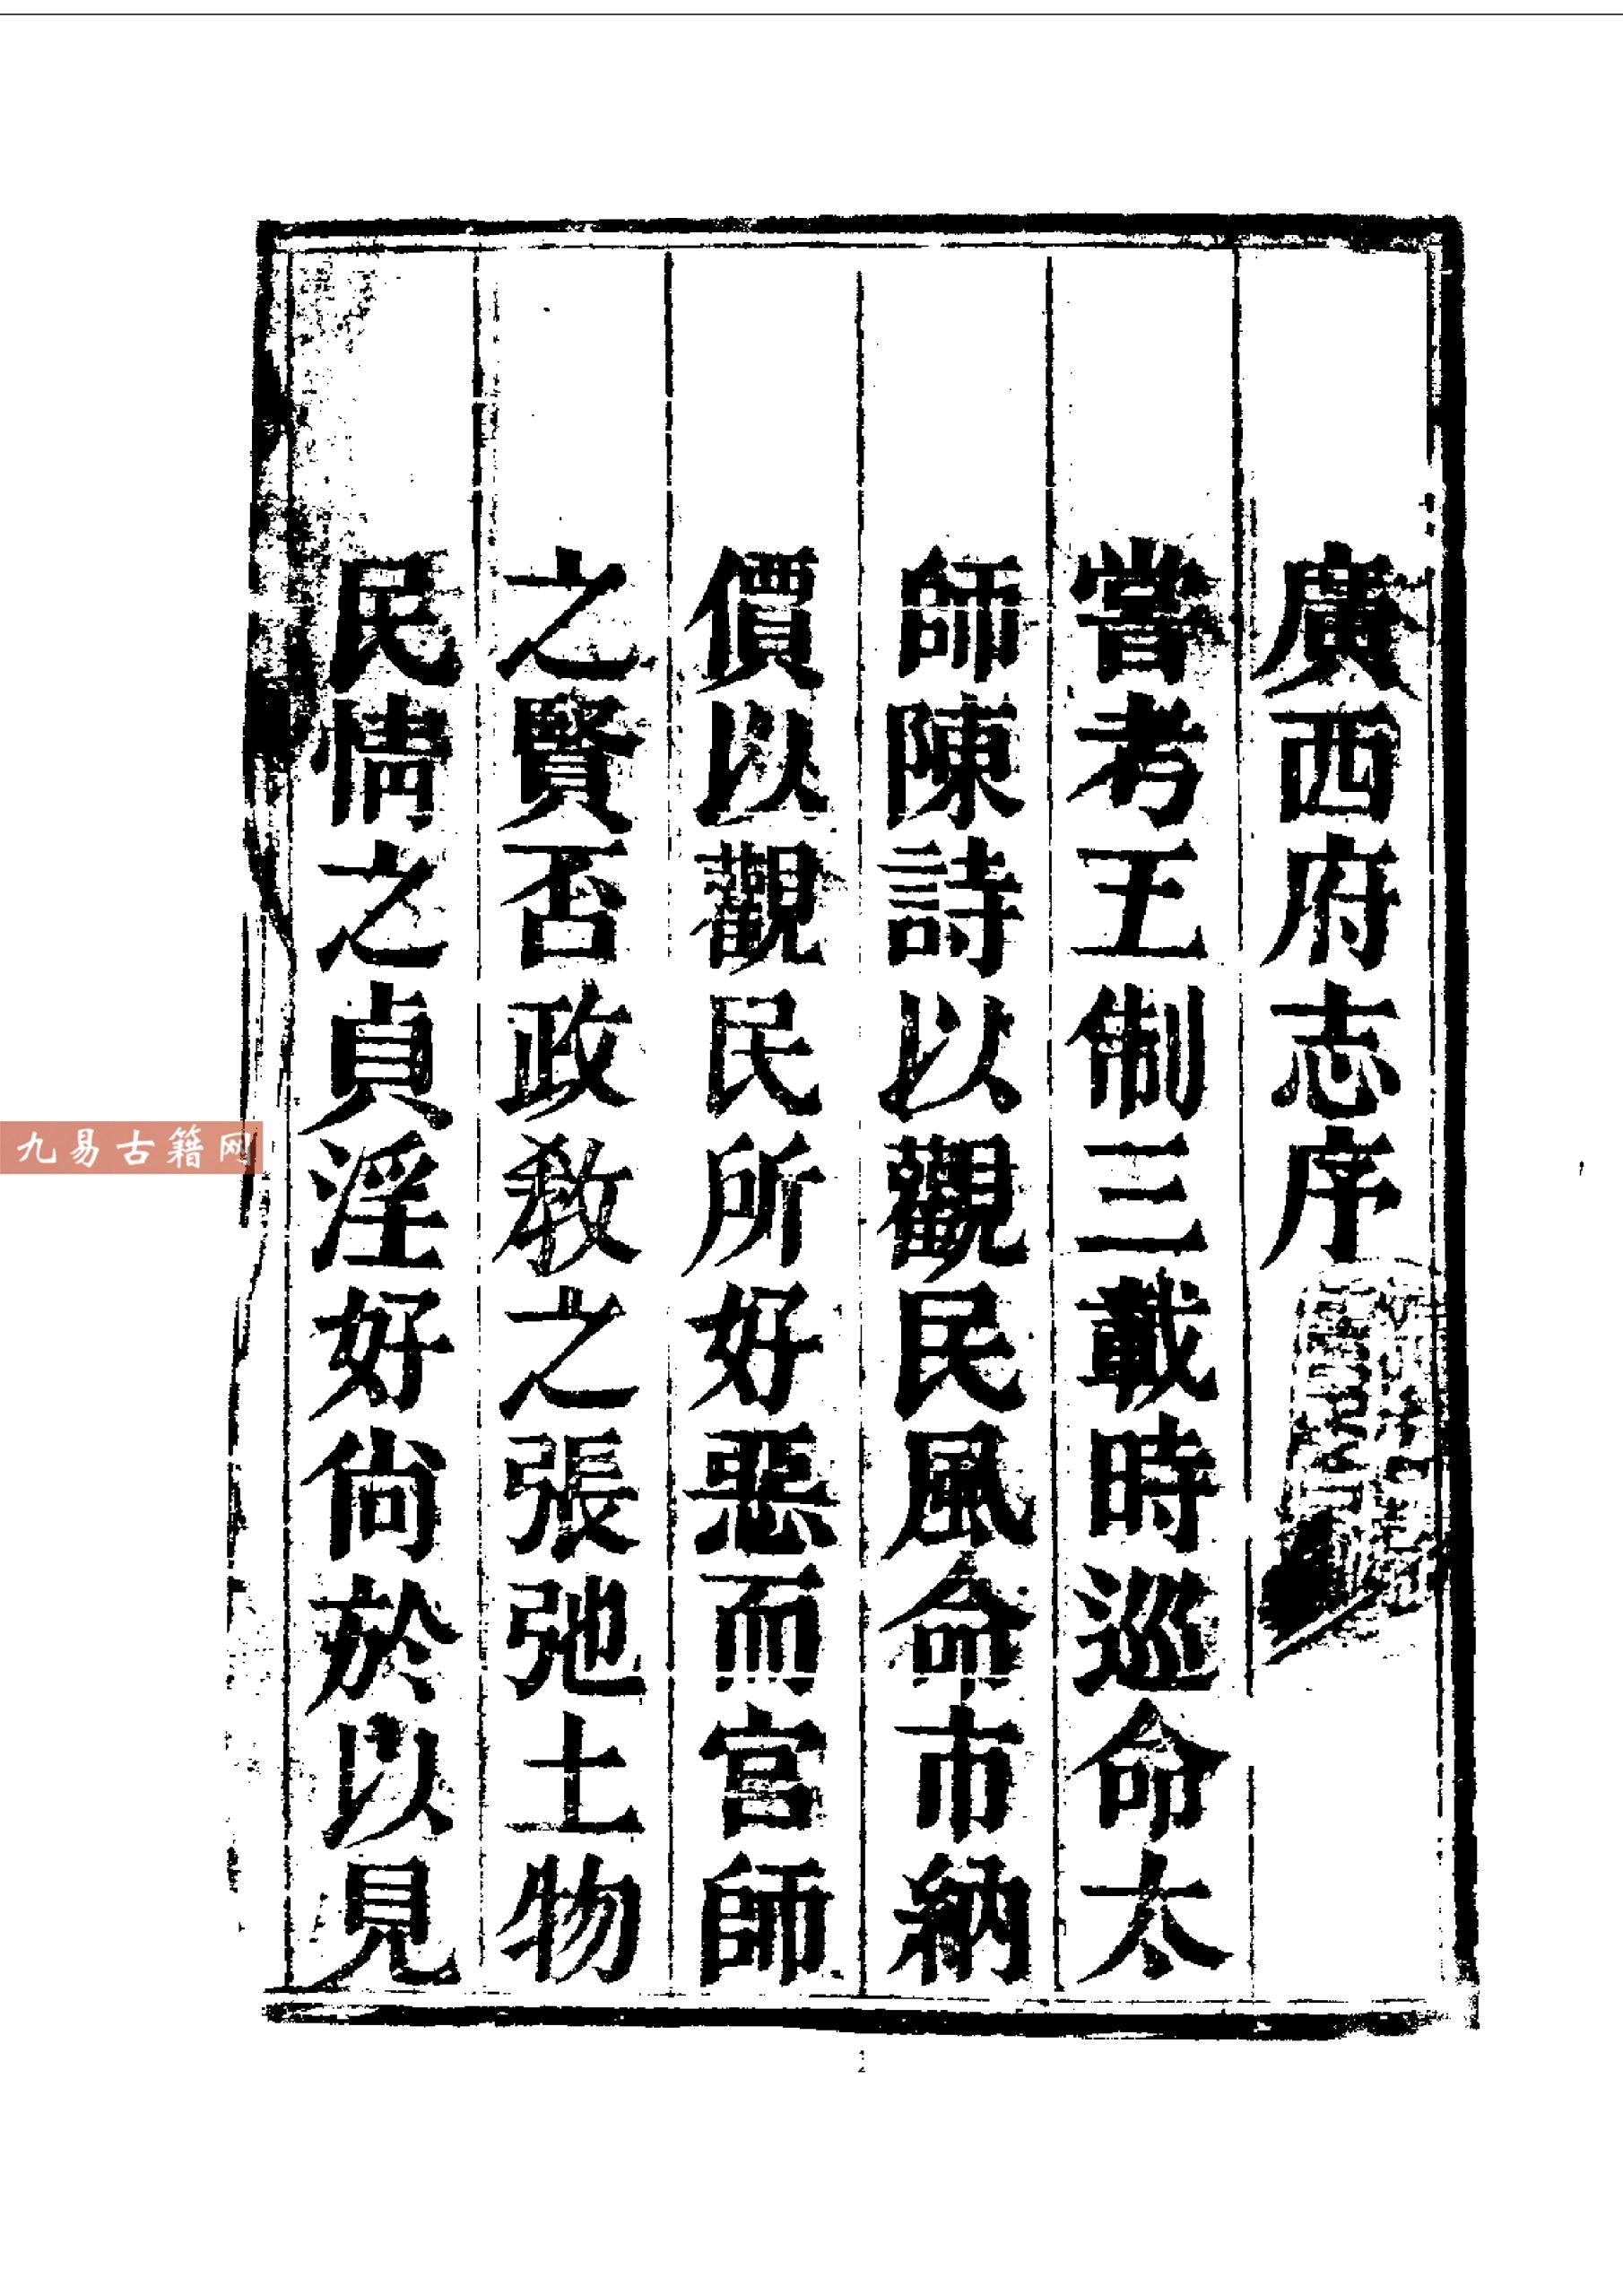 廣西府志序
嘗考王制三載時巡命太
師陳詩以觀民風命市納
價以觀民所好惡而官師
之賢否政教之張弛土物
民情之貞淫好尚於以見
九易古籍网